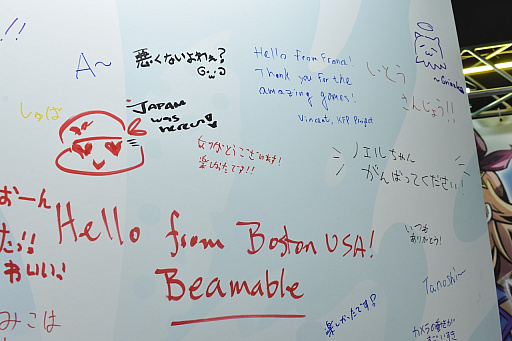 !!
A〜
悪くないよねぇ?
Hello from France!
Thank you for the
amazing games!
Vincent, KFP Project
いとう
さんじょう!!
しゅば
JAPAN
was
here
ありがとうございます!
楽しかったです!!
ノエルちゃん
がんばってください!
おーん
たっ!!
Hello from Boston USA!
Beamable
いつも
ありがとう!
Tanoshi〜
みこは
楽しかったです!
カメラの